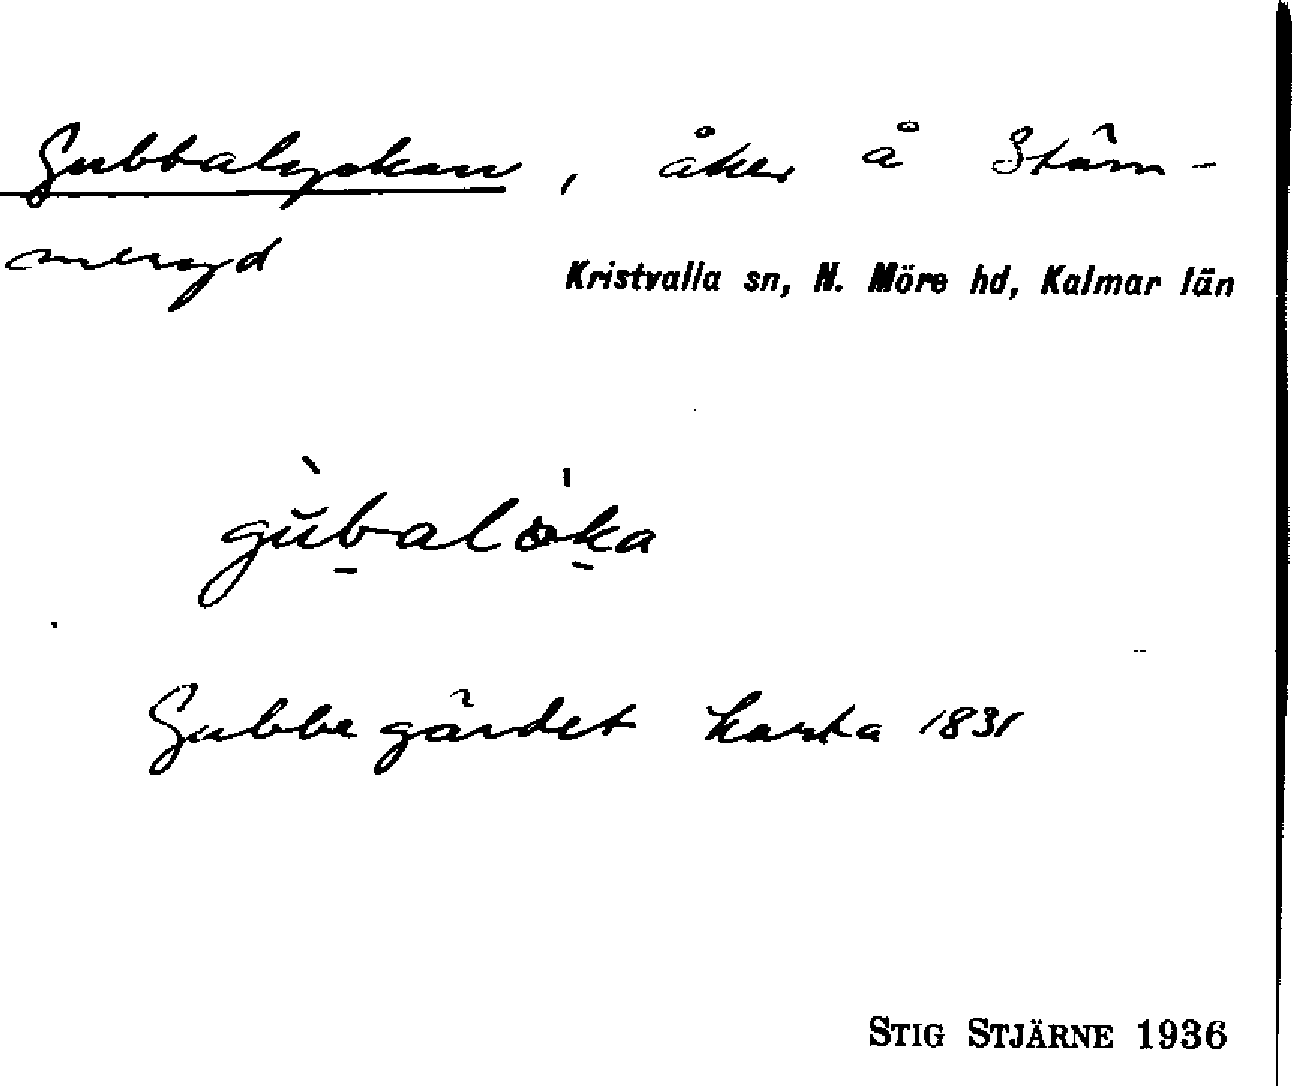 Gubbalyckan, åker å Stäm-
meryd
Kristvalla sn, N. Möre hd, Kalmar län
gùbalöka
Gubbegärdet karta 1831
STIG STJÄRNE 1936